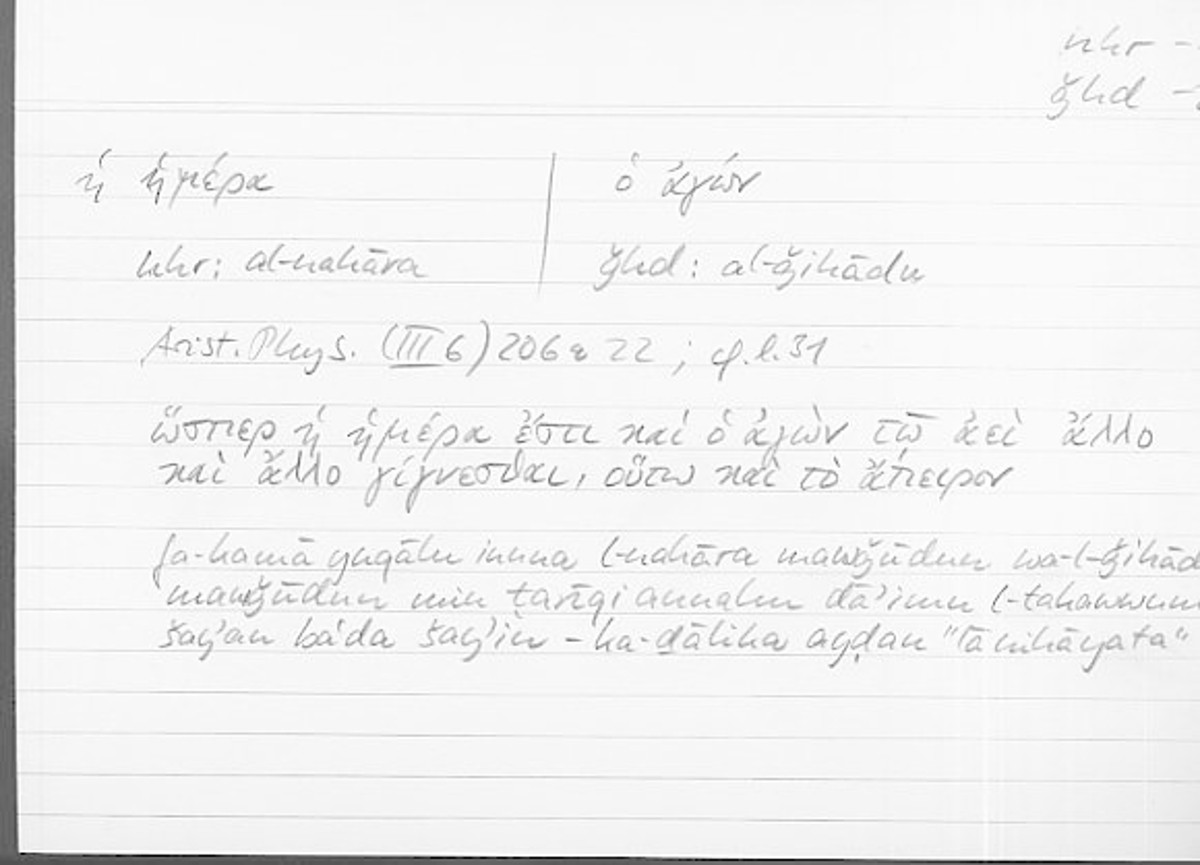 nhr -
ǧhd -
ἡ ἡμέρα | ὁ ἀγών
nhr: al-nahāra | ǧhd: al-ǧihādu
Arist. Phys. (III 6) 206a22; cf. l. 31
ὥσπερ ἡ ἡμέρα ἔστι καὶ ὁ ἀγὼν τῷ ἀεὶ ἄλλο
καὶ ἄλλο γίγνεσθαι, οὕτω καὶ τὸ ἄπειρον
fa-kamā yuqālu inna l-nahāra mawǧūdun wa-l-ǧihād
mawǧūdun min ṭarīqi annahu dā'imu l-takawwun
šay'an ba'da šay'in – ka-ḏālika ayḍan "lā nihāyata"